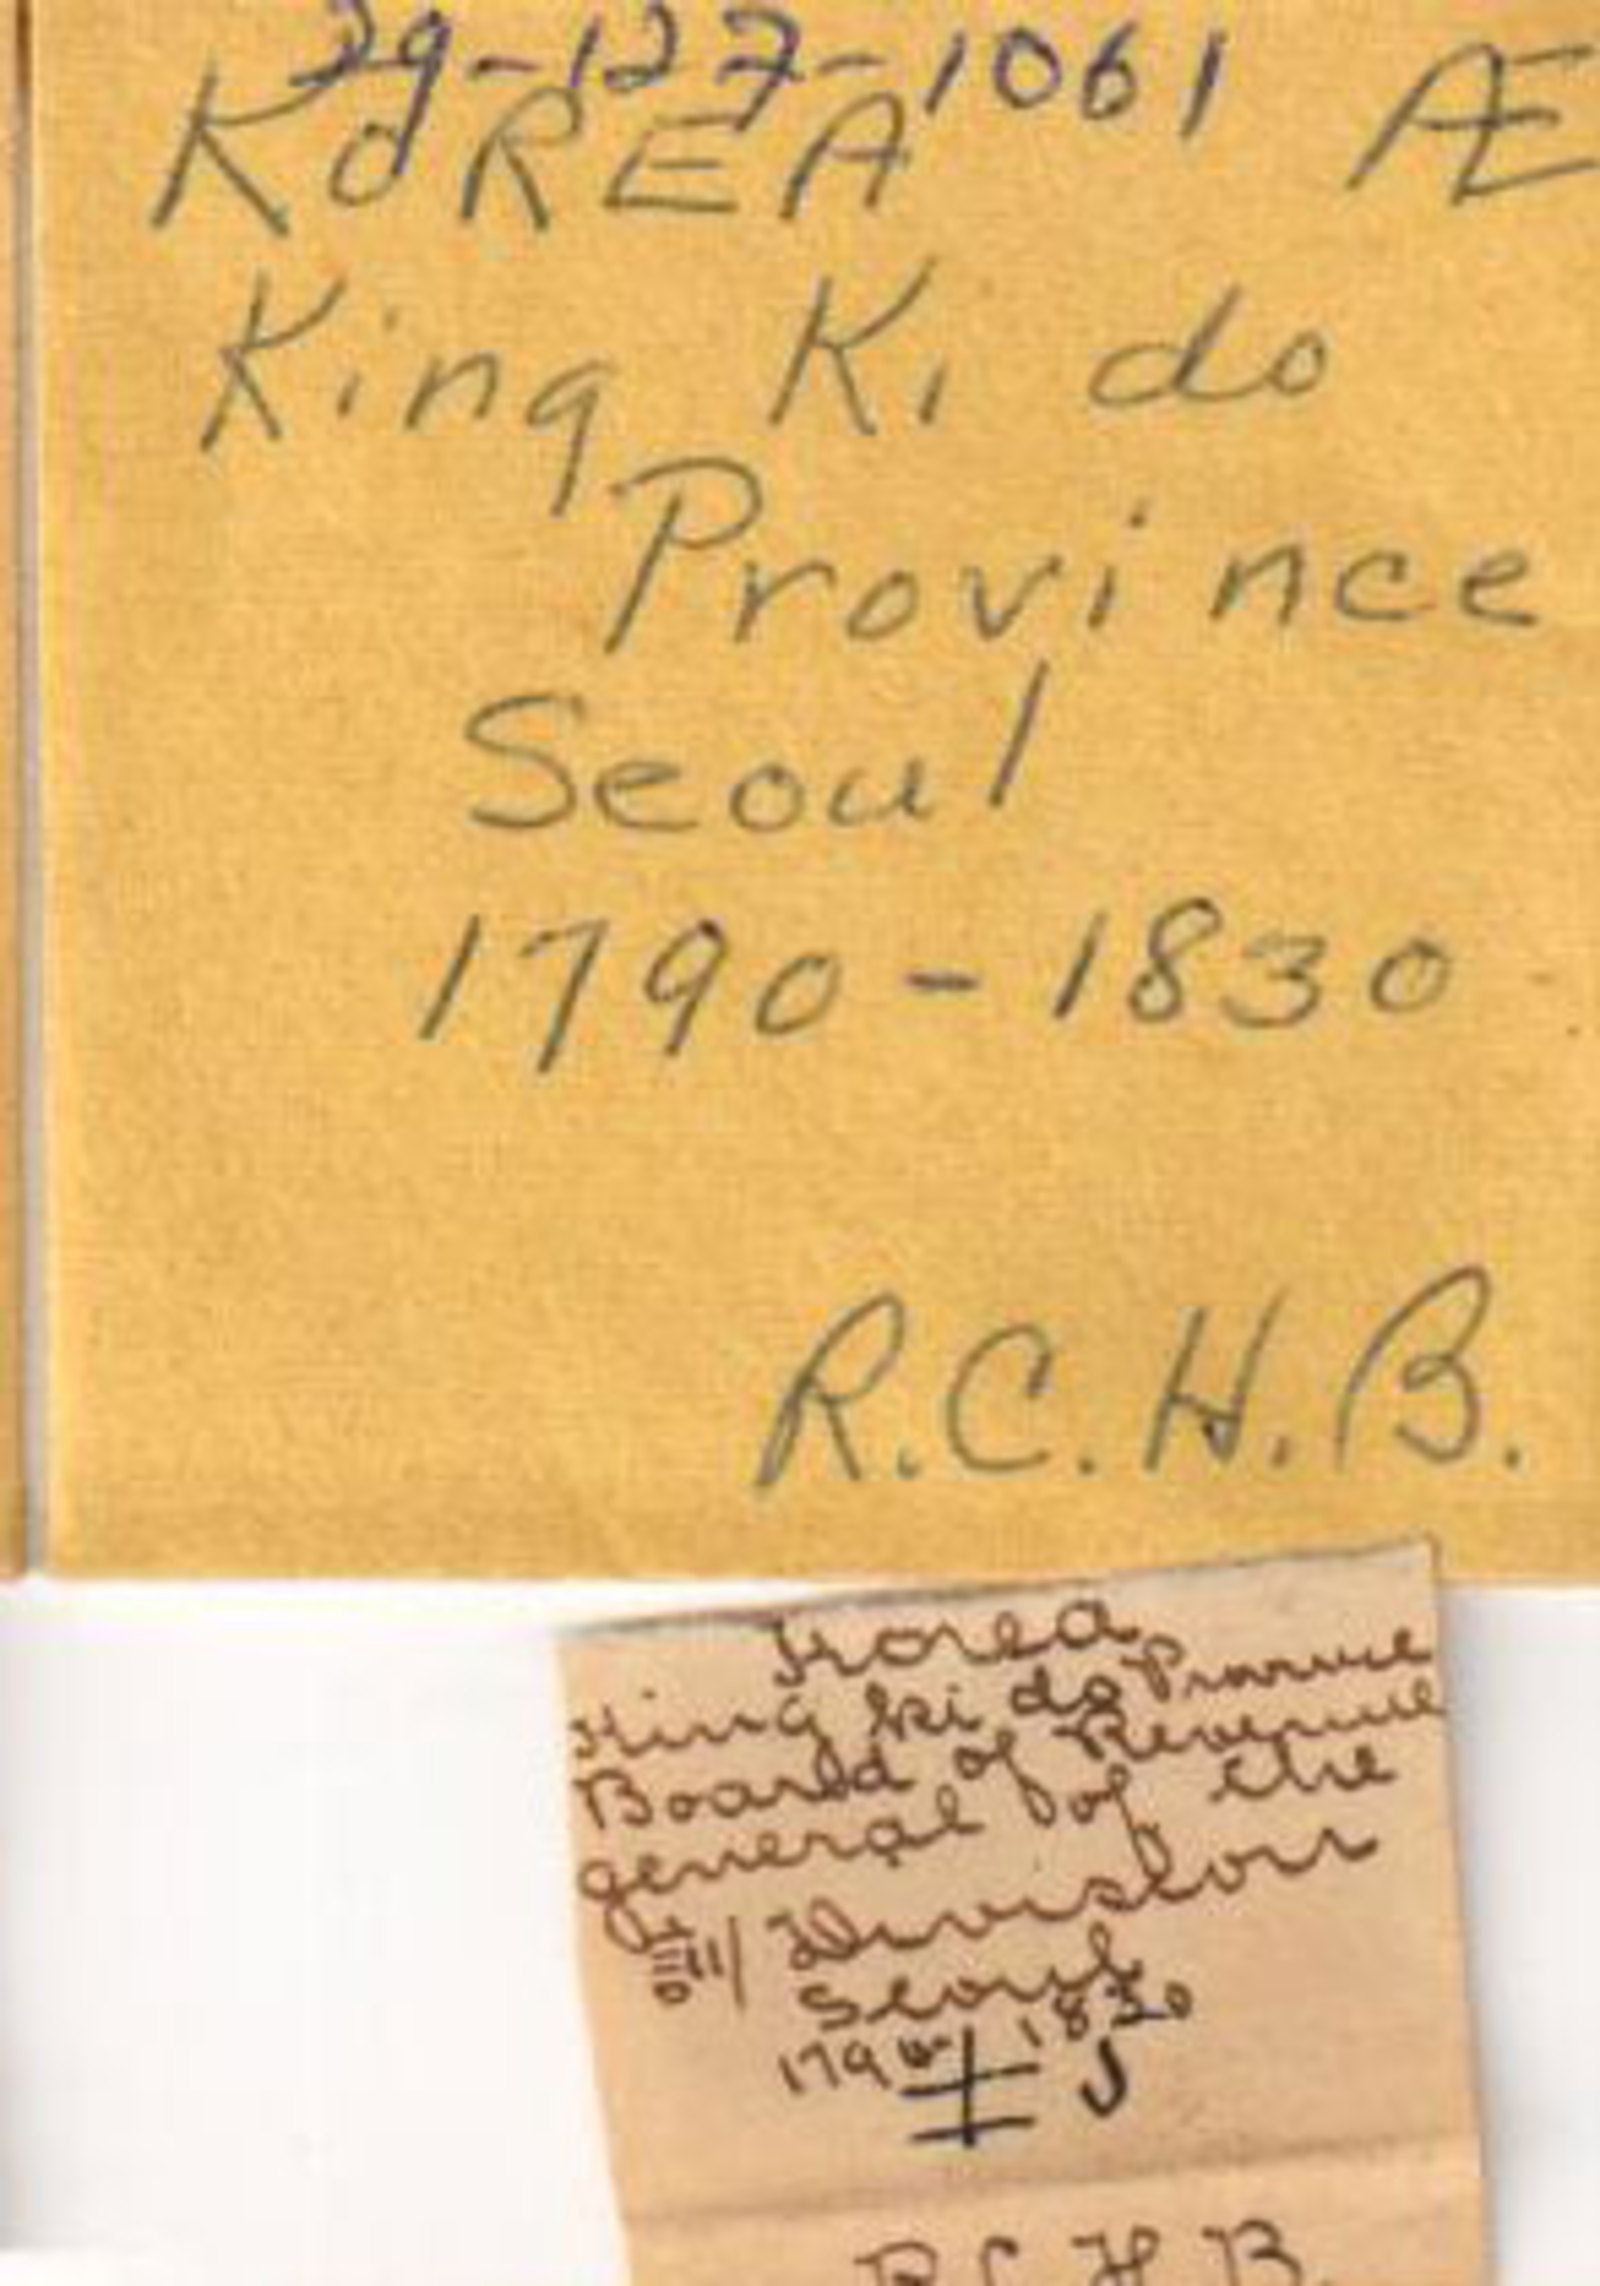 29-127-1061 Æ
KOREA
King Ki do
Province
Seoul
1790-1830
R.C.H.B.
Korea
King ki do Province
Board of Revenue
general of the
Division
Seoul
1790 1830
J
R C H B.